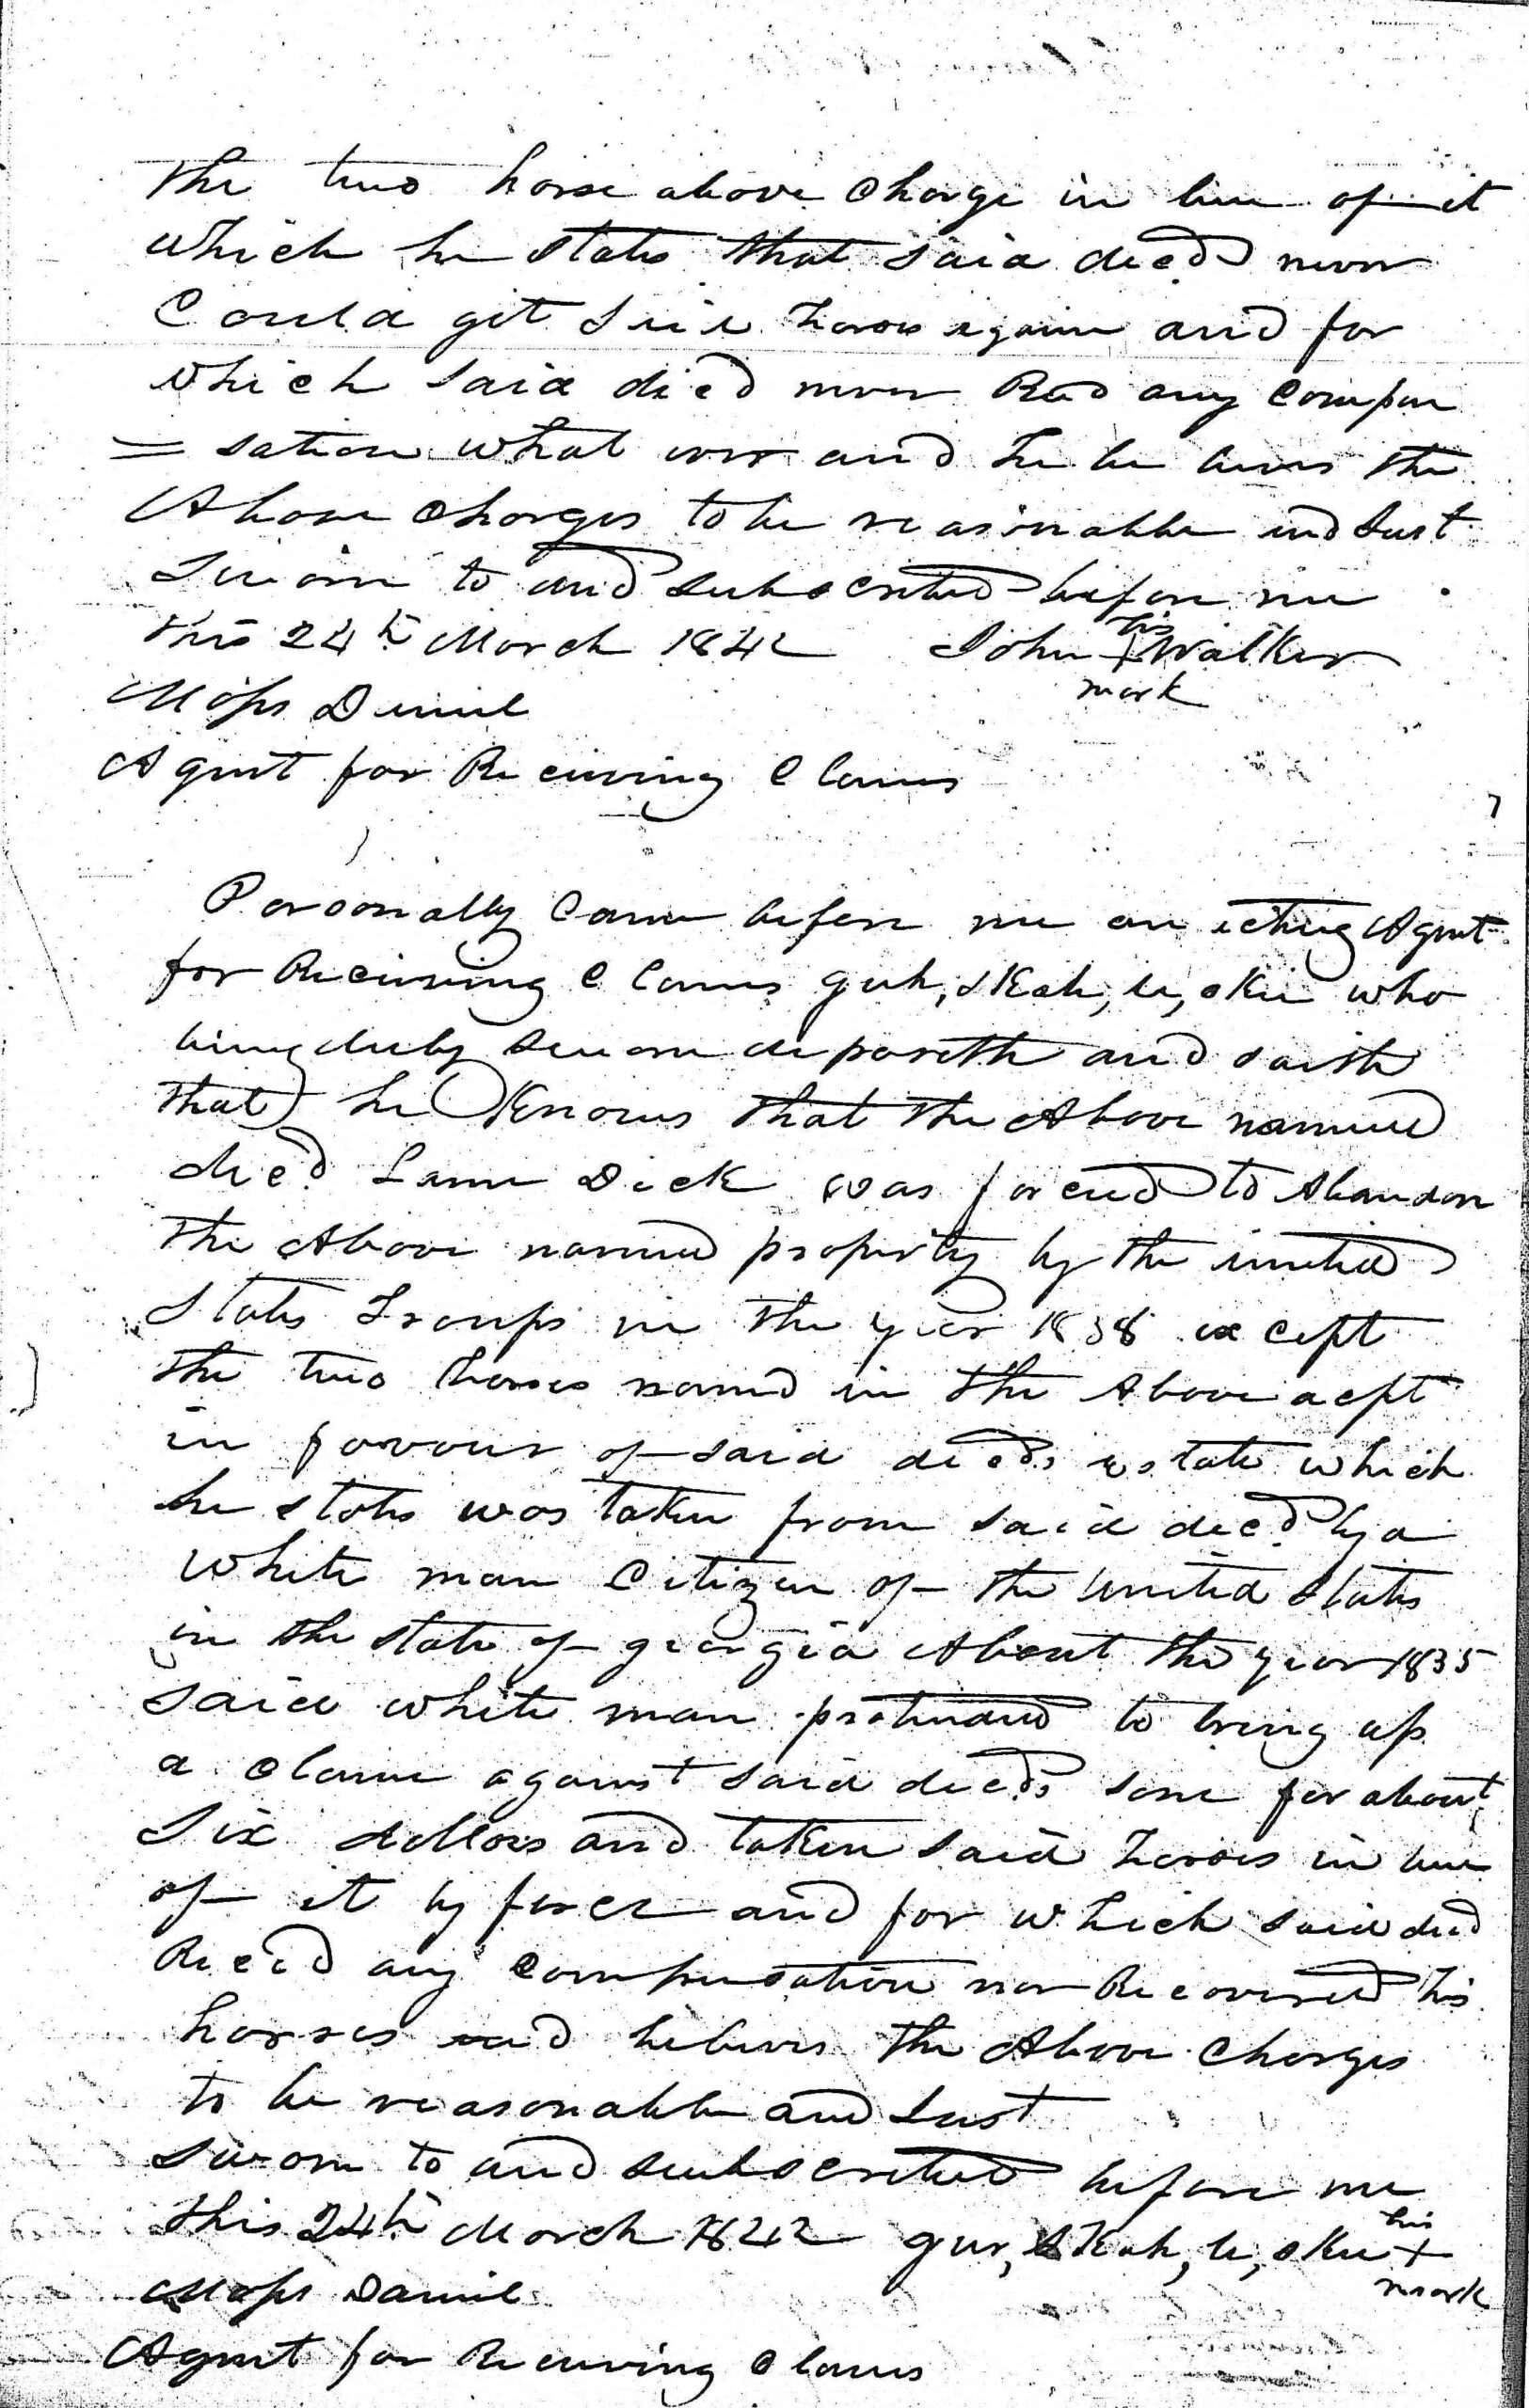 the two horse above Charge in lieu of it
which he states that said decd never
Could get said horses again and for
which said decd never Recd any compen
= sation what ever and he believes the
Above Charges to be reasonable and Just
Sworn to and subscribed before me
this 24th March 1842 John his + Walker
mark
Moses Daniel
Agent for Receiving Claims
Personally Came before me an acting Agent
for Receiving Claims guh, skah, le, skee who
being duly sworn deposeth and saith
that he Knows that the Above named
decd Lame Dick was forced to Abandon
the Above named property by the united
States Troops in the year 1838 except
the two horses named in the Above acpt
in favour of said decds estate which
he states was taken from said decd by a
white man Citizen of the united States
in the state of georgia About the year 1835
said white man pretended to bring up
a claim against said decds son for about
Six dollars and taken said horses in lieu
of it by force and for which said decd
Recd any compensation nor Recovered his
horses and believes the Above Charges
to be reasonable and Just
Sworn to and subscribed before me
this 24th March 1842 gur, skah, le, skee his +
mark
Moses Daniel
Agent for Receiving Claims